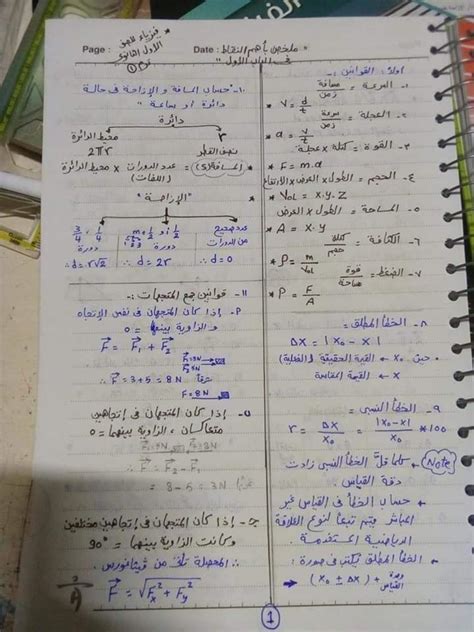 Page :
Date :
فيزياء للصف
الأول الثانوي
ترم ①
* ملخص بأهم النقاط
في الباب الأول "
أولاً : القوانين :-
١- السرعة = مسافة / زمن
* v = d/t
٢- العجلة = سرعة / زمن
* a = v/t
٣- القوة = كتلة × عجلة
* F = m.a
٤- الحجم = الطول × العرض × الارتفاع
* Vol = x.y.z
٥- المساحة = الطول × العرض
* A = x.y
٦- الكثافة = كتلة / حجم
* ρ = m/Vol
٧- الضغط = قوة / مساحة
* P = F/A
٨- الخطأ المطلق :
Δx = |x₀ - x|
حيث x₀ ← القيمة الحقيقية (الفعلية)
x ← القيمة المقاسة
٩- الخطأ النسبي :
r = Δx/x₀ = |x₀-x|/x₀ *100
Note
كلما قلّ الخطأ النسبي زادت
دقة القياس
حساب الخطأ في القياس غير
المباشر يتم تبعاً لنوع العلاقة
الرياضية المستخدمة.
الخطأ المطلق يكتب في صورة :
(x₀ ± Δx) + وحدة القياس
١٠- حساب المسافة والإزاحة في حالة
دائرة أو ساعة "
دائرة
r
نصف القطر
محيط الدائرة
2πr
المسافة (s) = عدد الدورات × محيط الدائرة
(اللفات)
"الإزاحة"
عدد صحيح
من الدورات
∴ d = 0
دورة
∴ d = 2r
3/4 ، 1/4
دورة
∴ d = r√2
١١- قوانين جمع المتجهات :-
إذا كان المتجهان في نفس الإتجاه
والزاوية بينهما = 0
F = F₁ + F₂
∴ F = 3+5 = 8N
F = 8N
ب- إذا كان المتجهان في إتجاهين
متعاكسان ، الزاوية بينهما = 0
∴ F = F₂ - F₁
= 8 - 5 = 3N
ج- إذا كان المتجهان في إتجاهين مختلفين
وكانت الزاوية بينهما = 90°
∴ المحصلة تأتي من فيثاغورس.
F = √Fx² + Fy²
1